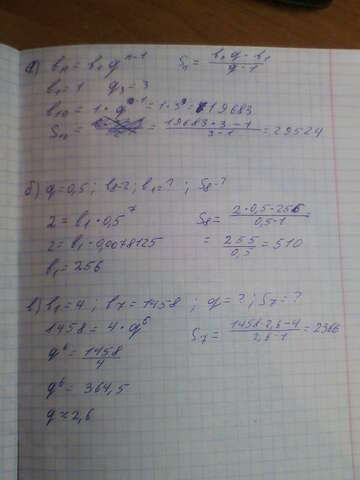 а) bn = b1 q^n-1 Sn = bn q - b1 / q - 1
b1 = 1 q = 3
b10 = 1 · q^n-1 = 1 · 3^9 = 19683
S10 = = 19683 · 3 - 1 / 3 - 1 = 29524
б) q = 0,5 ; b8 = 2 ; b1 = ? ; S8 - ?
2 = b1 · 0,5^7 S8 = 2 · 0,5 - 256 / 0,5 - 1
2 = b1 · 0,0078125 = 255 / 0,5 = 510
b1 = 256
в) b1 = 4 ; b7 = 1458 ; q = ? ; S7 = ?
1458 = 4 · q^6 S7 = 1458 · 2,6 - 4 / 2,6 - 1 = 2366
q^6 = 1458 / 4
q^6 = 364,5
q ≈ 2,6